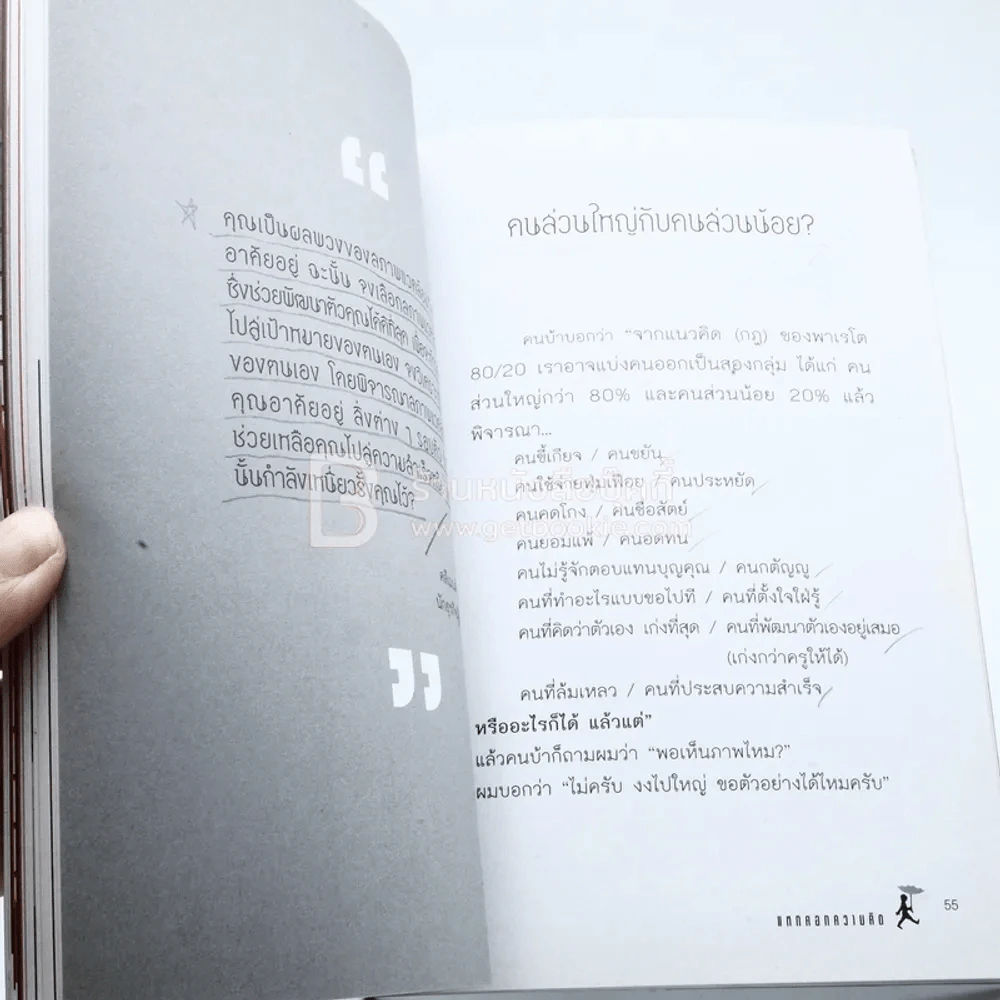 “
คุณเป็นผลพวงของสภาพแวดล้อม
อาศัยอยู่ ฉะนั้น จงเลือกสภาพ
ซึ่งช่วยพัฒนาตัวคุณได้ดีที่สุด
ไปสู่เป้าหมายของตนเอง
ของตนเอง โดยพิจารณาสภาพ
คุณอาศัยอยู่ สิ่งต่าง ๆ รอบตัว
ช่วยเหลือคุณไปสู่ความสำเร็จ
นั้นกำลังเหนี่ยวรั้งคุณไว้?
”
คนส่วนใหญ่กับคนส่วนน้อย?
คนบ้าบอกว่า “จากแนวคิด (กฎ) ของพาเรโต
80/20 เราอาจแบ่งคนออกเป็นสองกลุ่ม ได้แก่ คน
ส่วนใหญ่กว่า 80% และคนส่วนน้อย 20% แล้ว
พิจารณา...
คนขี้เกียจ / คนขยัน
คนใช้จ่ายฟุ่มเฟือย / คนประหยัด
คนคดโกง / คนซื่อสัตย์
คนยอมแพ้ / คนอดทน
คนไม่รู้จักตอบแทนบุญคุณ / คนกตัญญู
คนที่ทำอะไรแบบขอไปที / คนที่ตั้งใจใฝ่รู้
คนที่คิดว่าตัวเอง เก่งที่สุด / คนที่พัฒนาตัวเองอยู่เสมอ
(เก่งกว่าครูให้ได้)
คนที่ล้มเหลว / คนที่ประสบความสำเร็จ
หรืออะไรก็ได้ แล้วแต่”
แล้วคนบ้าก็ถามผมว่า “พอเห็นภาพไหม?”
ผมบอกว่า “ไม่ครับ งงไปใหญ่ ขอตัวอย่างได้ไหมครับ”
แหกคอกความคิด
55
B ร้านหนังสือบุ๊คกี้
www.getbookie.com